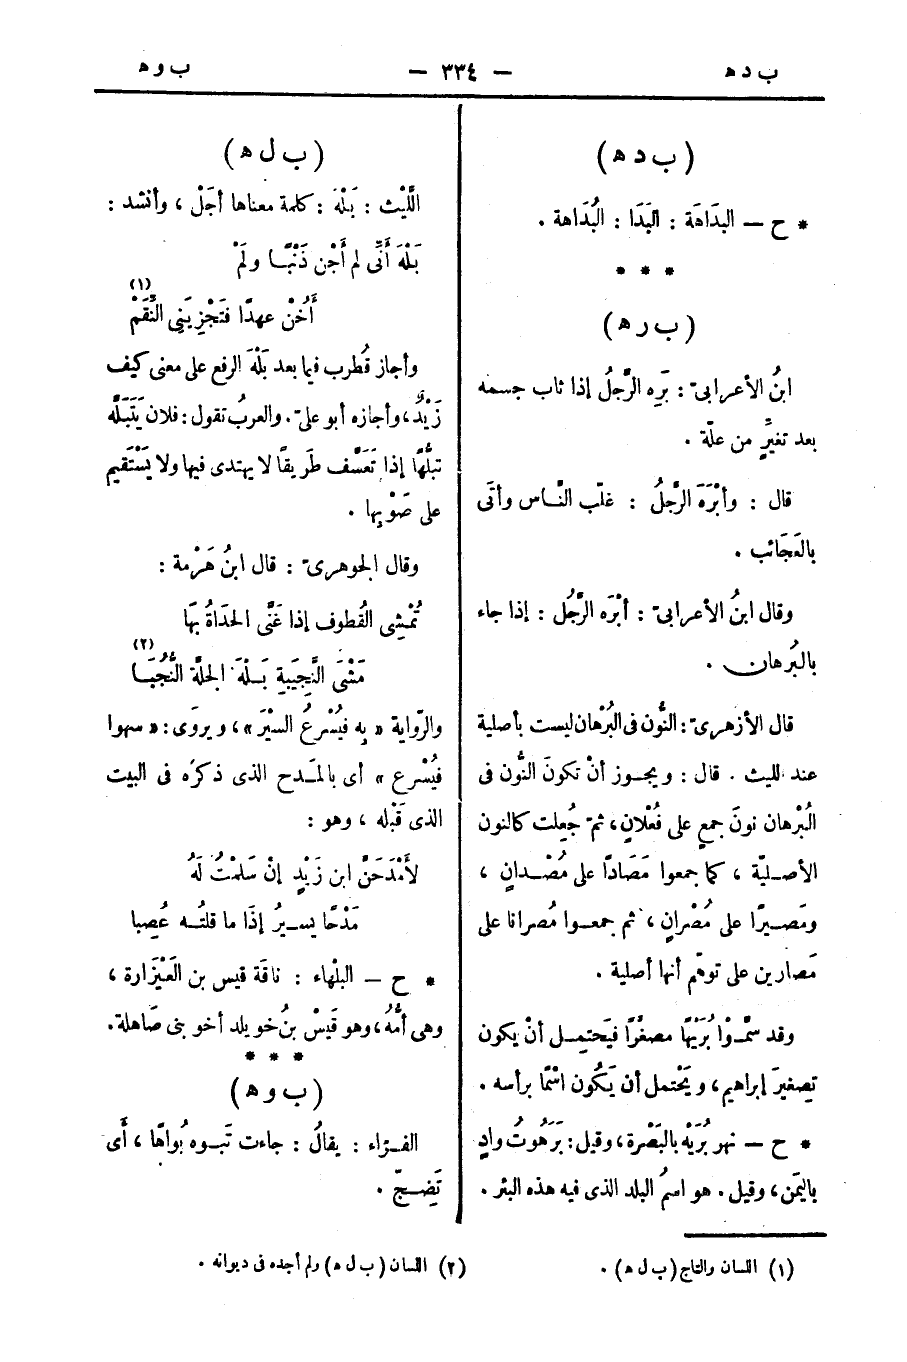 ب د ه
— ٣٣٤ —
ب و ه
( ب د ه )
* ح — البدَاهَة : البَدَا : البُدَاهة .
* * *
( ب ر ه )
ابنُ الأعرابىّ : بَرِه الرَّجلُ إذا ثاب جسمه
بعد تغيُّرٍ من علّة .
قال : وأبْرَهَ الرَّجلُ : غلّب النَّاس وأتَى
بالعَجَائب .
وقال ابنُ الأعرابىّ : أبْرَه الرَّجُل : إذا جاء
بالبُرهان .
قال الأزهرىّ : النُّون فى البُرْهان ليست بأصلية
عند لليث . قال : ويجوز أنْ تكونَ النُّون فى
البُرْهان نونَ جمعٍ على فُعْلانٍ ، ثمّ جُعِلت كالنون
الأصـليّة ، كما جمعوا مَصَادًا على مُصْـدانٍ ،
ومَصـيرًا على مُصْرانٍ ، ثم جمعـوا مُصرانا على
مَصارين على توهّم أنها أصلية .
وقد سمَّـوْا بُرَيْهًا مصغَّرًا فيَحتمِـل أنْ يكون
تصغيرَ إبراهيم ، ويَحْتمل أن يَكُون اسْمًا برأسه .
* ح — نهر بُرَيْه بالبَصْرة ، وقيل : بَرَهُوتُ وادٍ
باليَمَن ، وقيل . هو اسمُ البلد الذى فيه هذه البئر .
( ب ل ه )
اللَّيْث : بَلْهَ : كلمة معناها أجَلْ ، وأنشد :
بَلْهَ أَنِّى لم أَجْن ذَنْبًا ولَمْ
أَخُنْ عهدًا فتَجْزِيَنِى النِّقَمْ (١)
وأجاز قُطرب فيما بعد بَلْهَ الرفع على معنى كيف
زَيْدٌ ، وأجازه أبو علىّ . والعربُ تقول : فلان يَتَبَلَّه
تبلُّهًا إذا تَعَسَّف طَريقًا لا يهتدى فيها ولا يَسْتَقيم
على صَوْبها .
وقال الجوهرىّ : قال ابنُ هَرْمة :
تُمْشِى القُطوف إذا غَنَّى الحدَاةُ بهَا
مَشْىَ النَّجِيبةِ بَـلْهَ الجلّة النُّجُبَـا (٢)
والرّواية « به فيُسْرعُ السيْرَ » ، ويروَى : « سهوا
فيُسْرع » أى بالمَـدح الذى ذكرَه فى البيت
الذى قَبْله ، وهو :
لأَمْدَحَنَّ ابن زَيْدٍ إنْ سَلمْتُ لَهُ
مَدْحًا يسـيرُ إذَا ما قلتُـه عُصِبا
* ح — البلْهاء : ناقَة قيس بن العَيْزارة ،
وهى أمُّهُ ، وهو قَيسْ بنُ خويلد أخو بنى صَاهلة .
* * *
( ب و ه )
الفـرّاء : يقالُ : جاءت تَبـوه بُواهًا ، أى
تَضِـجّ .
(١) اللسان والتاج ( ب ل ه ) .
(٢) اللسان ( ب ل ه ) ولم أجده فى ديوانه .